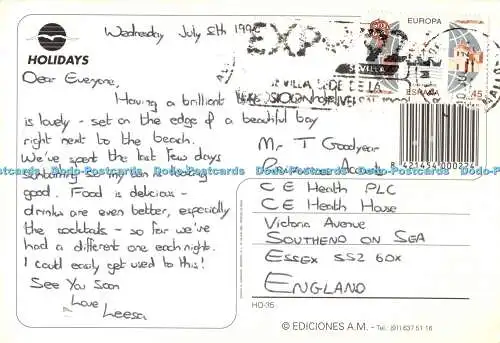 Wednesday July 8th 1992
HOLIDAYS
Dear Everyone,
Having a brilliant time
is lovely - set on the edge of a beautiful bay
right next to the beach.
We've spent the last few days
sunbathing so my tan is looking
good. Food is delicious -
drinks are even better, especially
the cocktails - so far we've
had a different one each night.
I could easily get used to this!
See You Soon
Love
Leesa
EXPO 92
SEVILLA
SEVILLA SEDE DE LA
EXPOSICION UNIVERSAL
EUROPA
ESPAÑA
45
8 421454 000224
Mr T Goodyear
Accounts
CE Health PLC
CE Health House
Victoria Avenue
SOUTHEND ON SEA
ESSEX SS2 6DX
ENGLAND
HO-35
© EDICIONES A.M. - Tel.: (91) 637 51 16
Dodo-Postcards